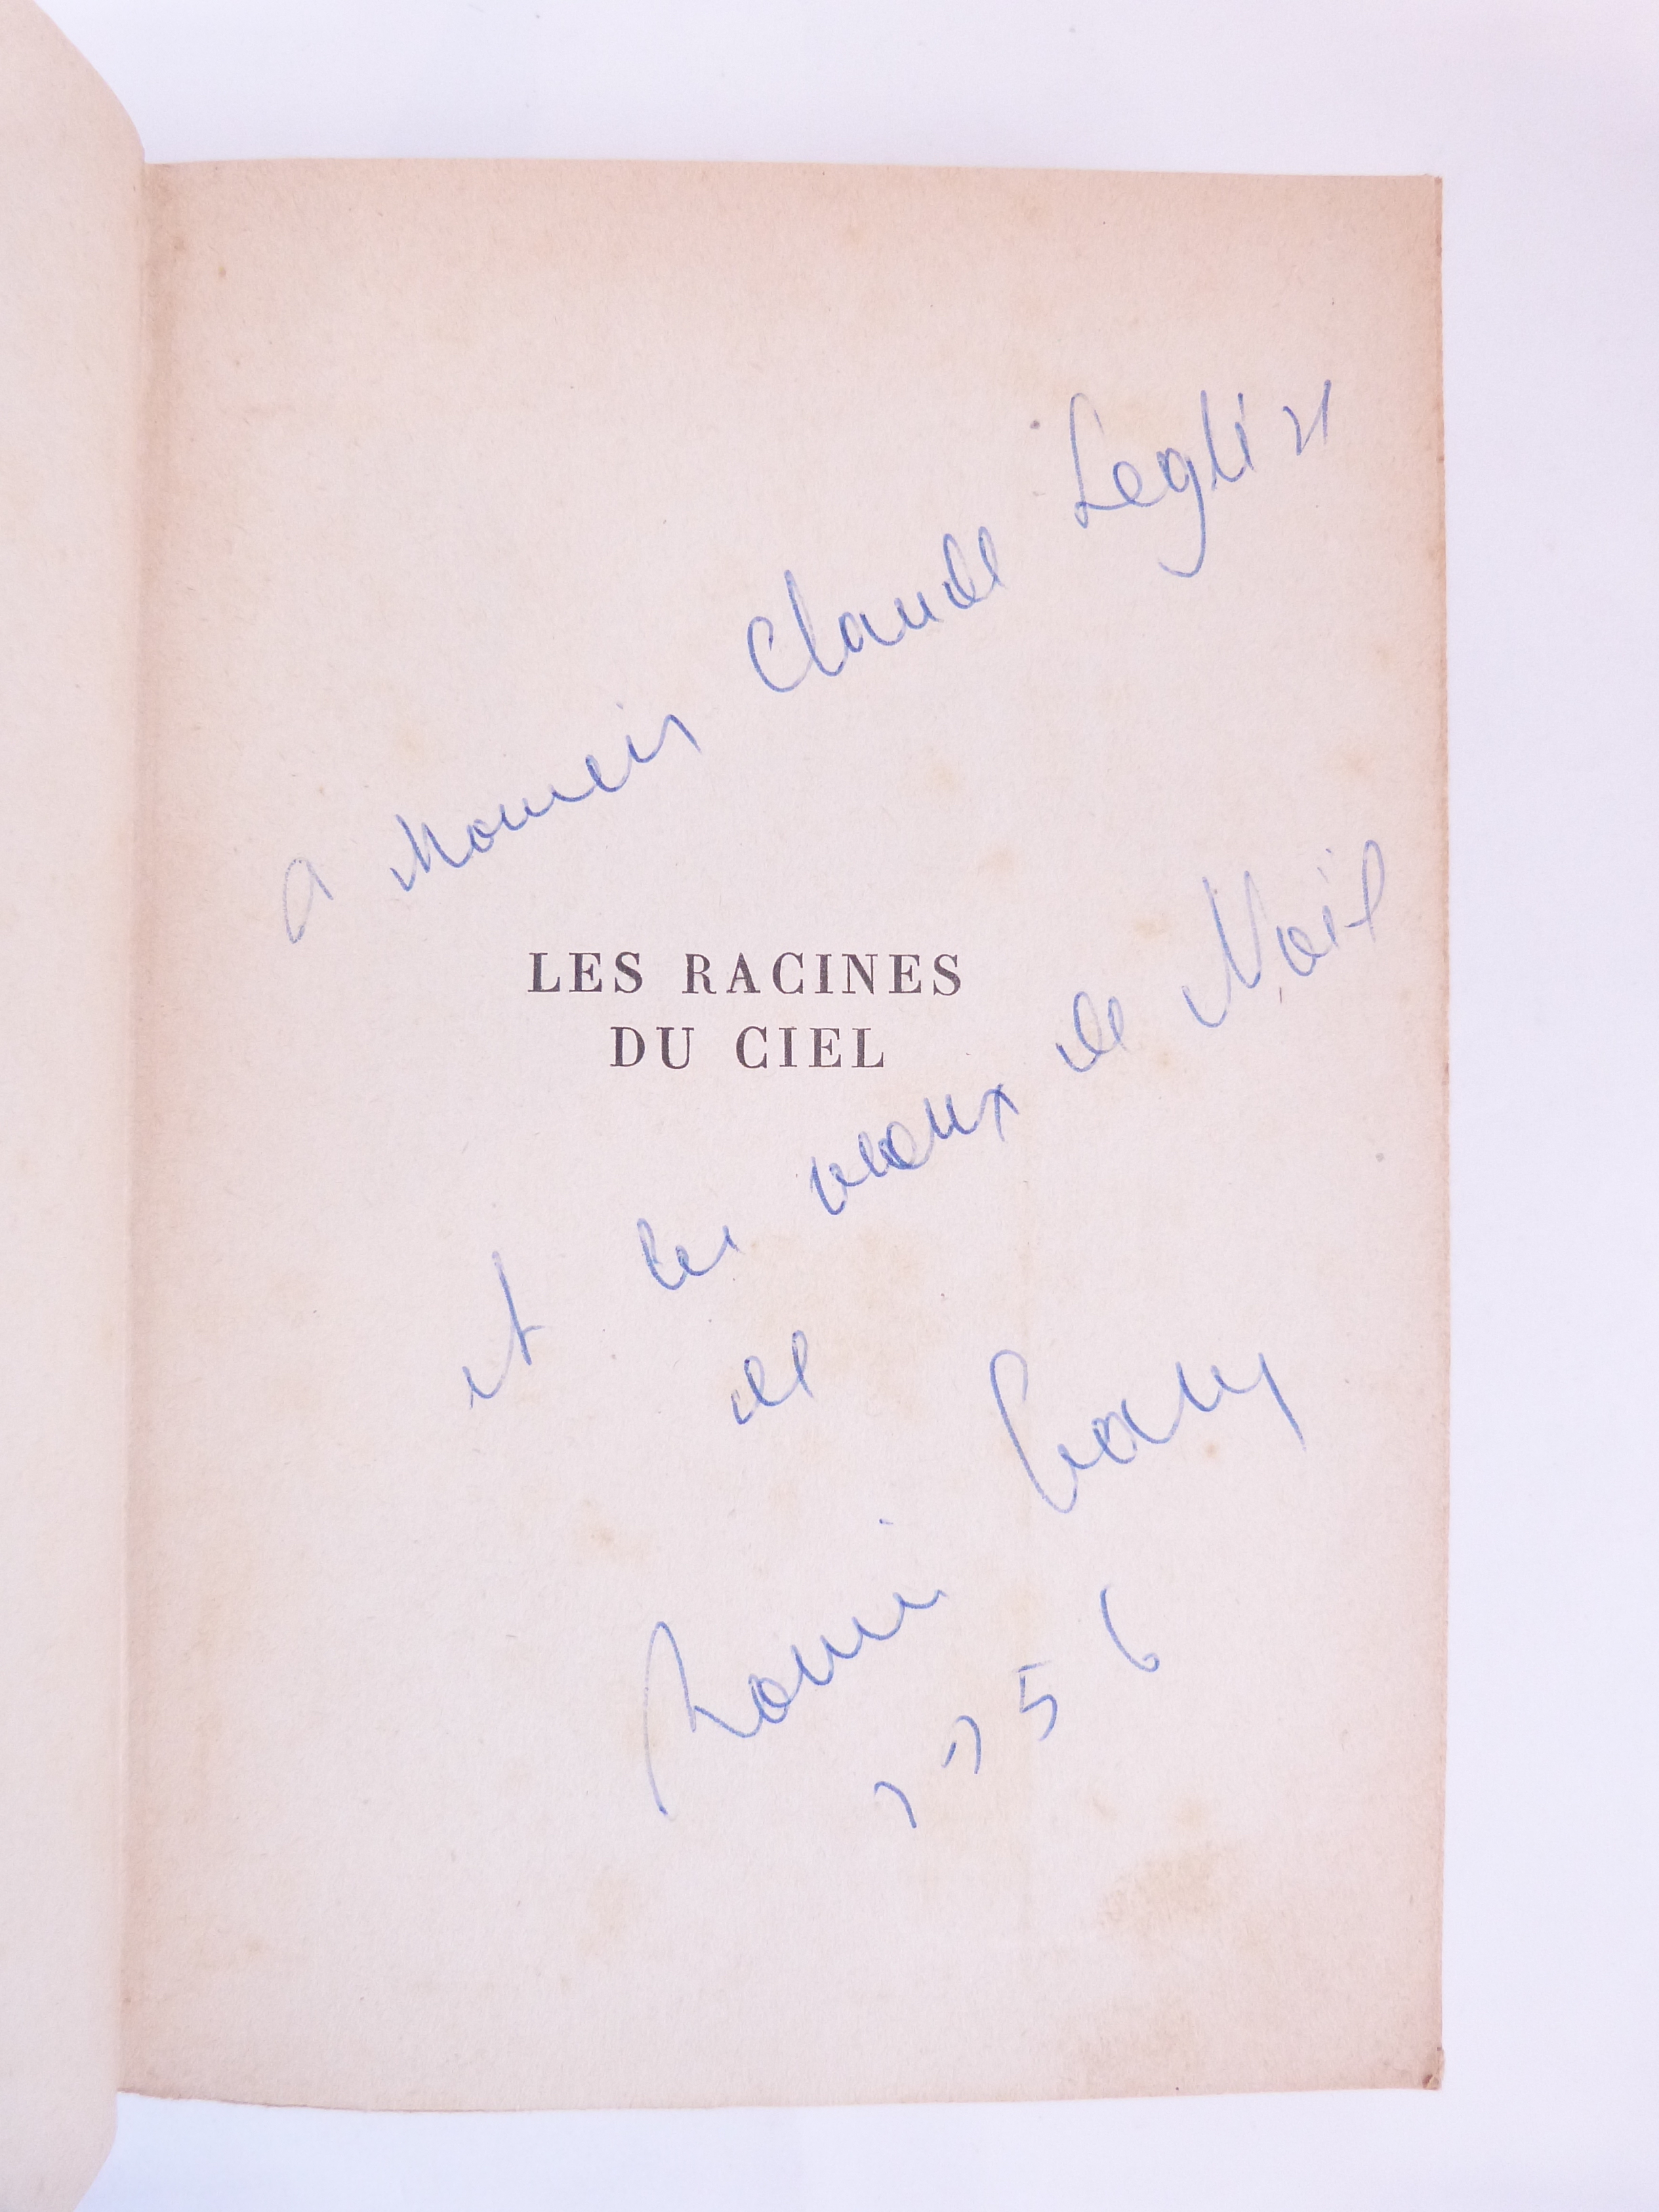 A Monsieur Claude Leglise
LES RACINES
DU CIEL
et les vœux de Noël
de
Romain Gary
1956